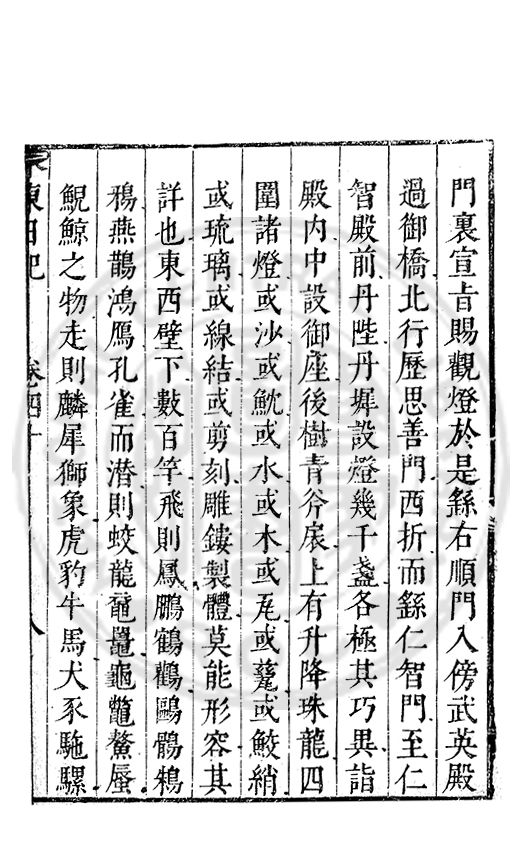 門裏宣旨賜觀燈於是繇右順門入傍武英殿
過御橋北行歷思善門西折而繇仁智門至仁
智殿前丹陛丹墀設燈幾千盞各極其巧異詣
殿内中設御座後樹青斧扆上有升降珠龍四
圍諸燈或沙或魫或水或木或瓦或蕟或鮫綃
或琉璃或線結或剪刻雕鏤製體莫能形容其
詳也東西壁下數百竿飛則鳳鵬鶴鸛鷗鶻鵜
鴉燕鵲鴻鴈孔雀而潜則蛟龍黿鼉龜鼈鰲蜃
鯢鯨之物走則麟犀獅象虎豹牛馬犬豕駞騾
東日記 卷四十 八